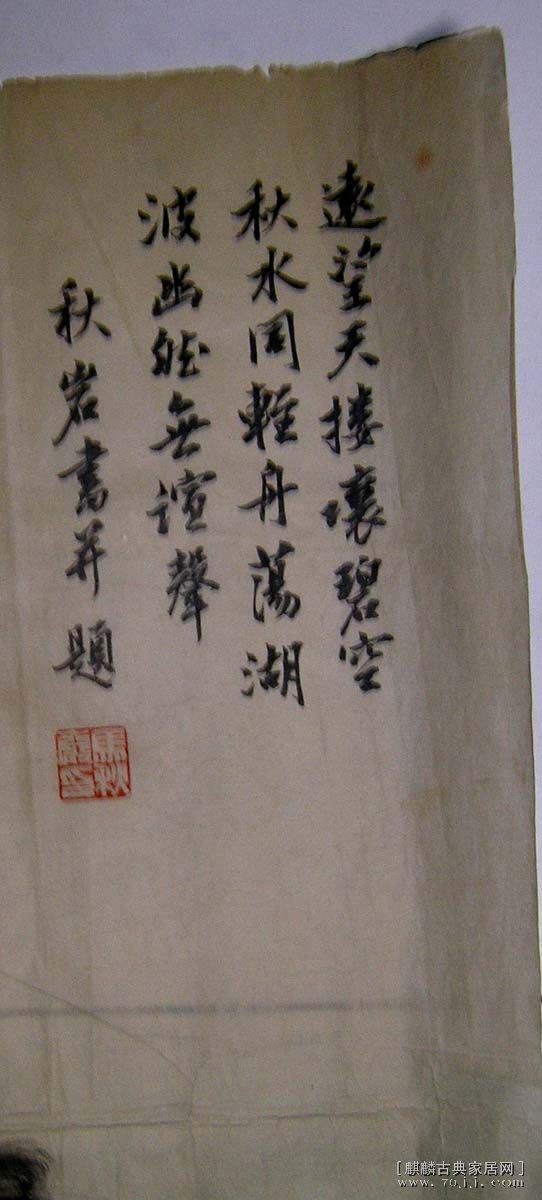 遠望天摟壤碧空
秋水同輕舟蕩湖
波幽然無諠聲
秋岩書并題
馬秋巖印
[麒麟古典家居网]
www.70jj.com